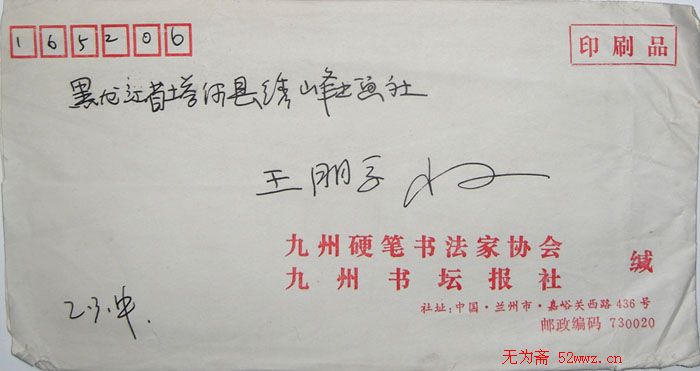 165200
印刷品
黑龙江省塔河县绣峰书画社
王朋子 收
九州硬笔书法家协会
九州书坛报社 缄
社址:中国·兰州市·嘉峪关西路436号
邮政编码 730020
无为斋 52wwz.cn